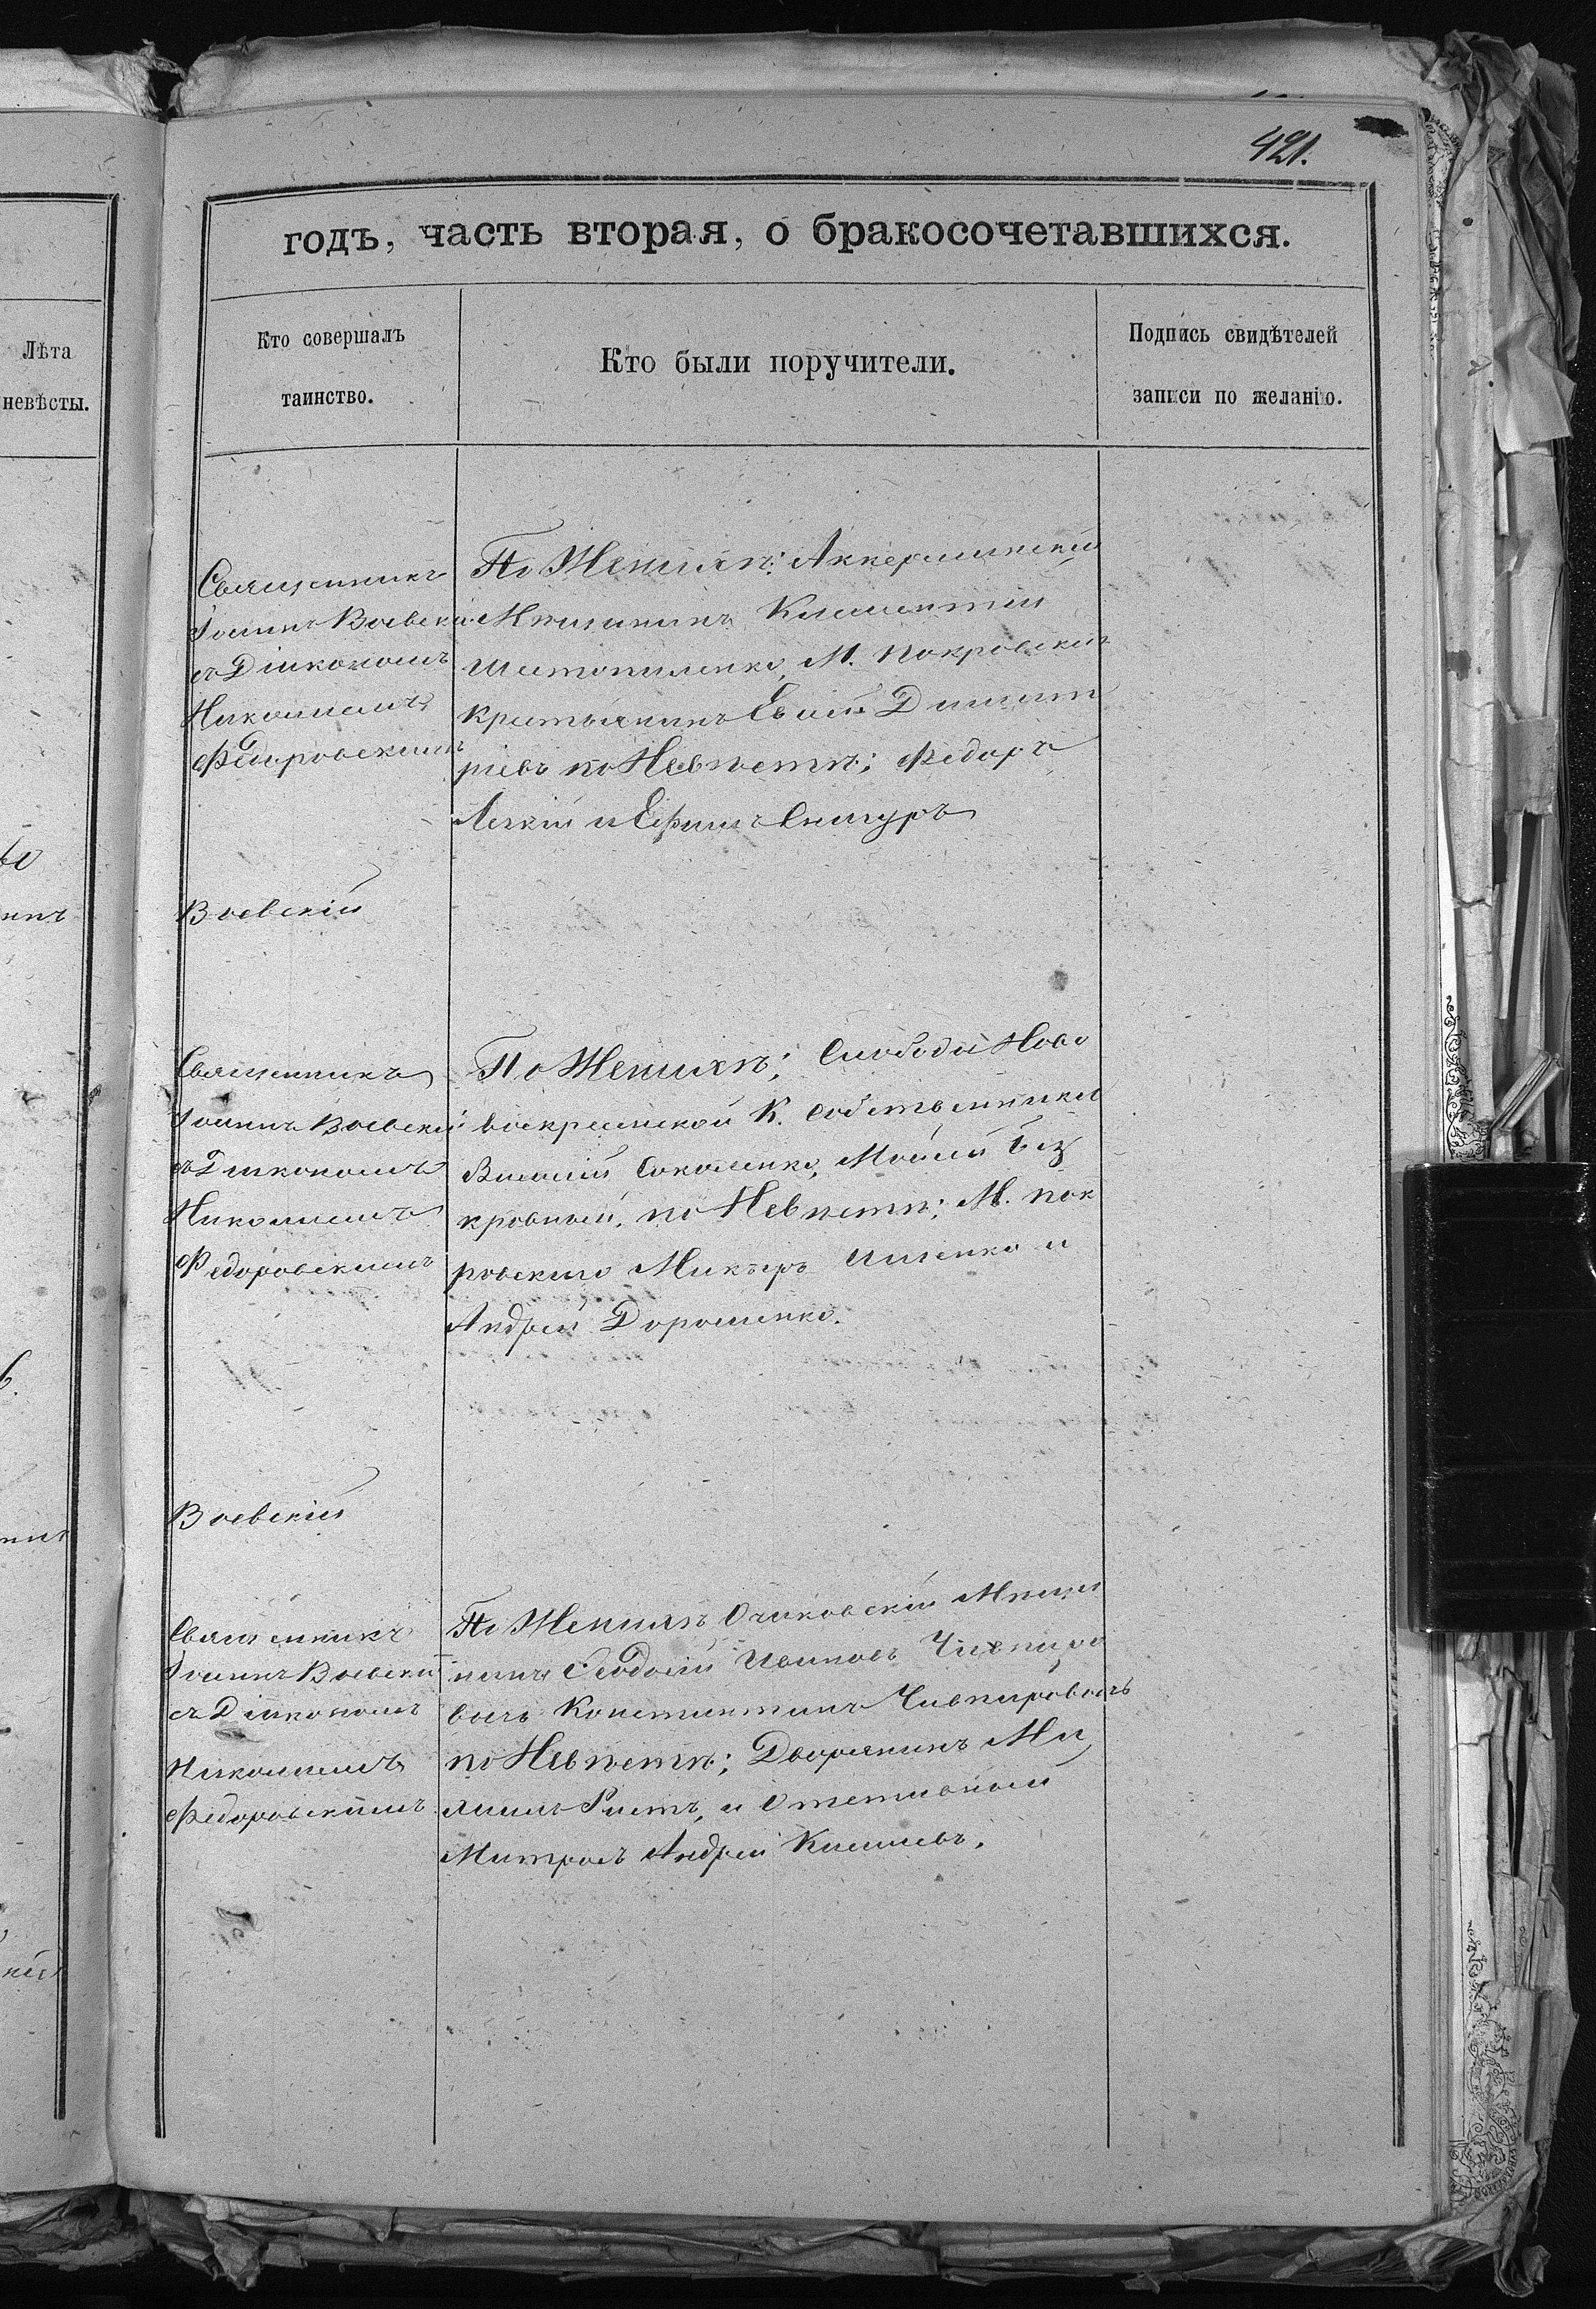 421.
годъ, часть вторая, о бракосочетавшихся.
Лѣта
невѣсты.
Кто совершалъ
таинство.
Кто были поручители.
Подпись свидѣтелей
записи по желанію.
Священникъ
Іоаннъ Воевскій
съ Діакономъ
Николаемъ
Федоровскимъ
По Женихѣ: Аккерманскій
Мѣщанинъ Климентій
М. Покровскаго
крестьянинъ Дмит
ріевъ по Невѣстѣ: Федоръ
Легкій и Ефимъ Снигуръ
Воевскій
Священникъ
Іоаннъ Воевскій
съ Діакономъ
Николаемъ
Федоровскимъ
По Женихѣ: Слободы Ново
воскресенской К. собственники
Василій Соколенко, Моисей Без
кровный, по Невѣстѣ: М. Пок
ровскаго Ищенко и
Андрей Дорошенко.
Воевскій
Священникъ
Іоаннъ Воевскій
съ Діакономъ
Николаемъ
Федоровскимъ
По Женихѣ Очаковскій Мѣща
нинъ Феодосій Ивановъ
Константинъ
по Невѣстѣ: Дворянинъ Ми
и Отставной
Матросъ Андрей